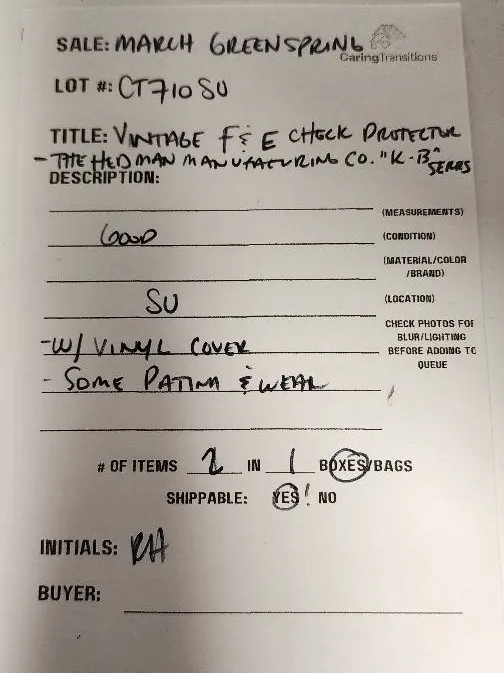 SALE: MARCH GREENSPRING
CaringTransitions
LOT #: CT710SU
TITLE: VINTAGE F & E CHECK PROTECTOR
- THE HEDMAN MANUFACTURING CO. "K-B" SERIES
DESCRIPTION:
(MEASUREMENTS)
GOOD (CONDITION)
(MATERIAL/COLOR
/BRAND)
SU (LOCATION)
CHECK PHOTOS FOR
BLUR/LIGHTING
BEFORE ADDING TO
QUEUE
- W/ VINYL COVER
- SOME PATINA & WEAR
# OF ITEMS 2 IN 1 BOXES/BAGS
SHIPPABLE: YES! NO
INITIALS: RH
BUYER: